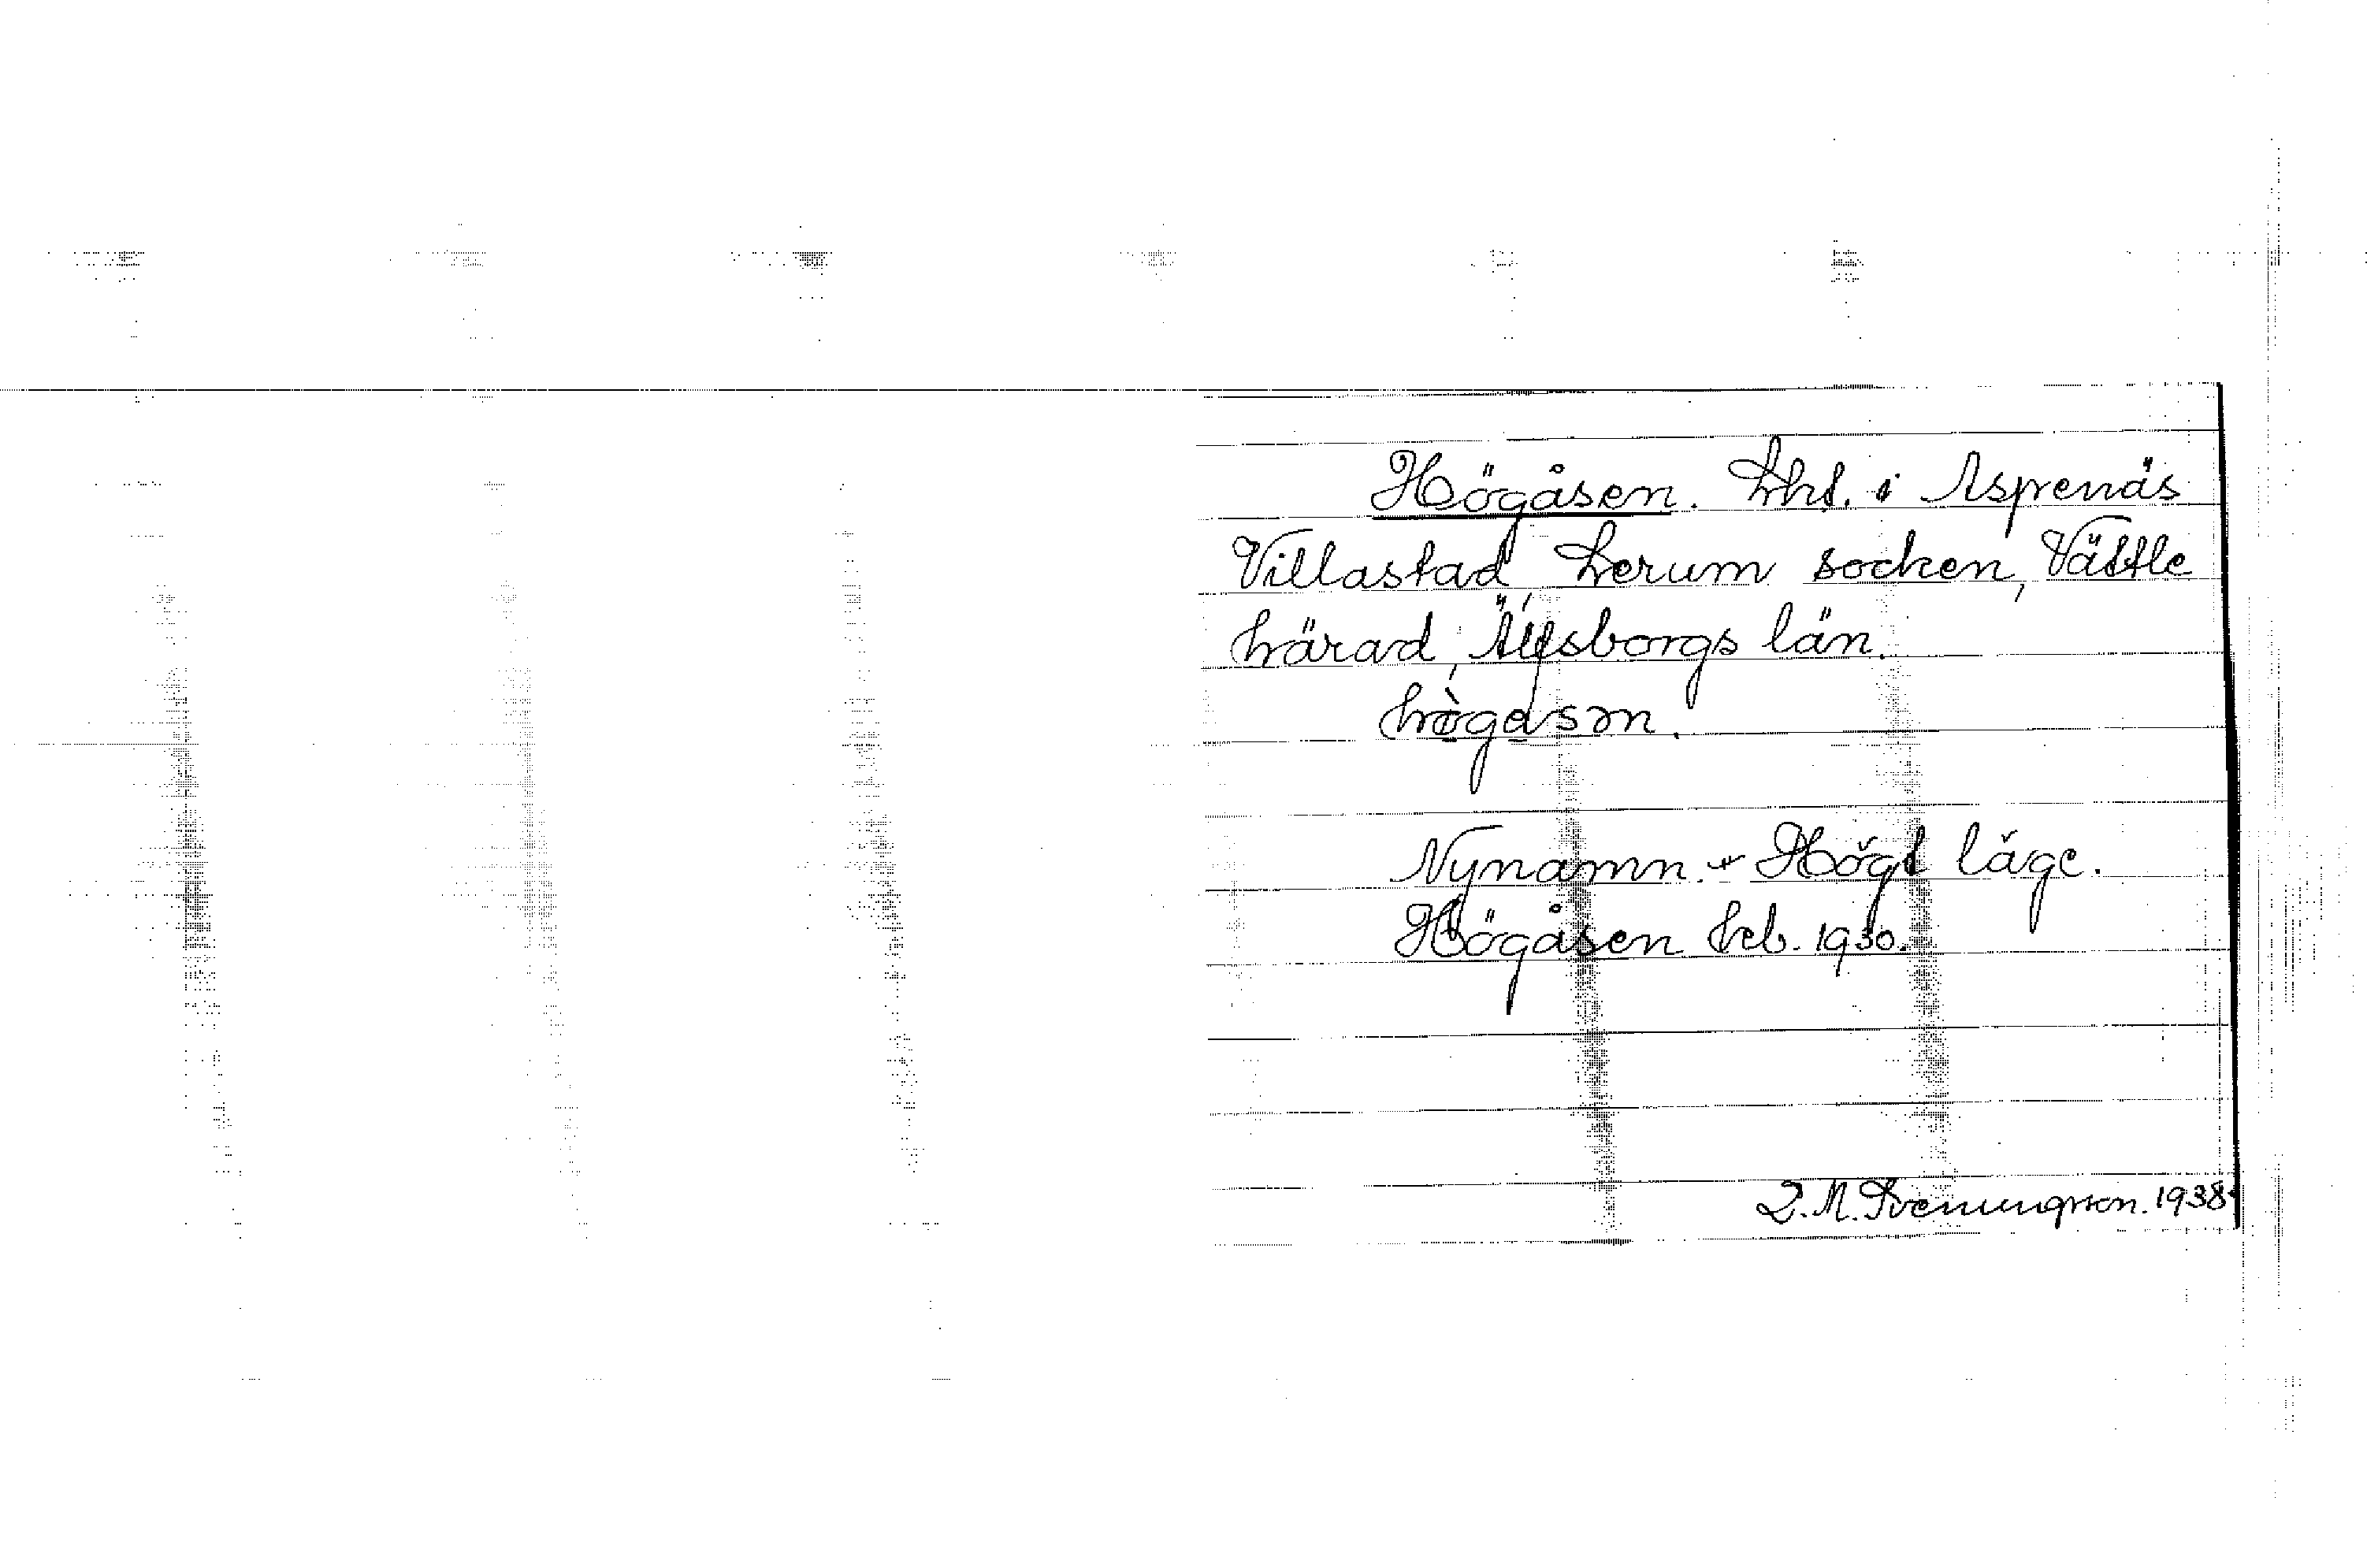 Högåsen. Lht. i Aspenäs
Villastad, Lerum socken, Vättle
härad, Älfsborgs län.
hògåsən.
Nynamn. + Högt läge.
Högåsen Feb. 1930.
M. 1938